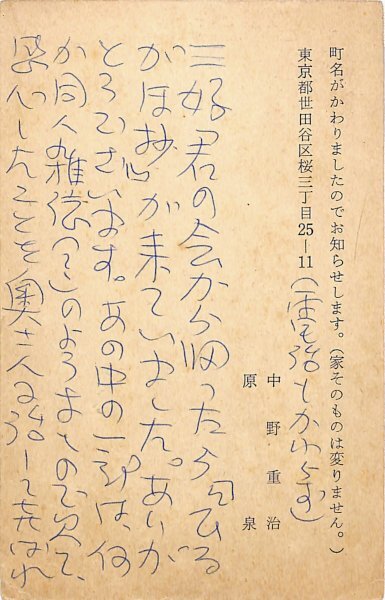 町名がかわりましたのでお知らせします。(家そのものは変りません。)
東京都世田谷区桜三丁目25―11(電話もかわらず)
中野重治
原泉
三好君の会から帰ったら
がは抄が来ていました。ありが
とうございます。あの中の一部は、何
か同人雑誌のようなもので
感心したことを奥さんに話して